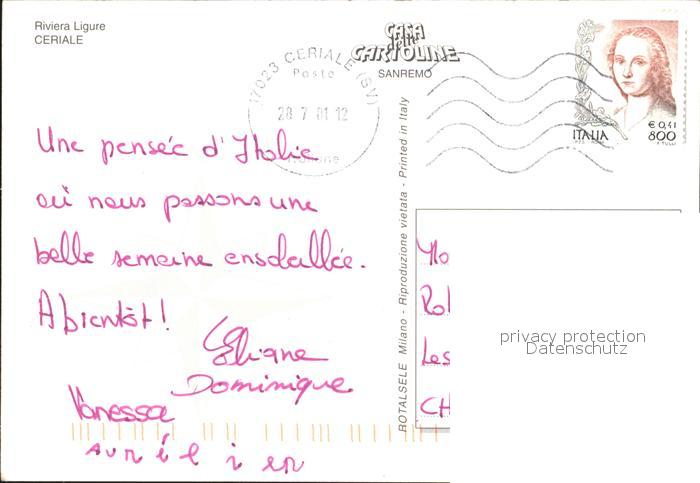 Riviera Ligure
CERIALE
CASA
delle
CARTOLINE
SANREMO
17023 CERIALE (SV)
Poste
28 7 01 12
ITALIA
€ 0,41
800
Une pensée d'Italie
où nous passons une
belle semaine ensoleillée.
A bientôt!
Eliane
Dominique
Vanessa
Aurélien
ROTALSELE Milano - Riproduzione vietata - Printed in Italy
Les
CH
privacy protection
Datenschutz